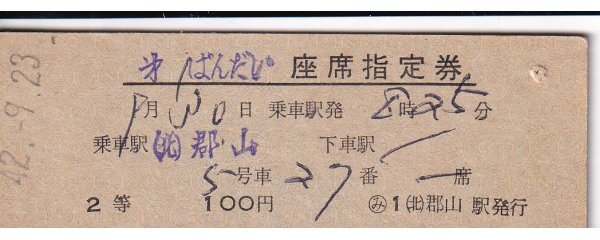 42.-9.23
才1ばんだい 座席指定券
月 日 乗車駅発 8時25分
乗車駅 ㋩郡山 下車駅
5号車 27番 席
2等 100円 ㋯1㋩郡山 駅発行